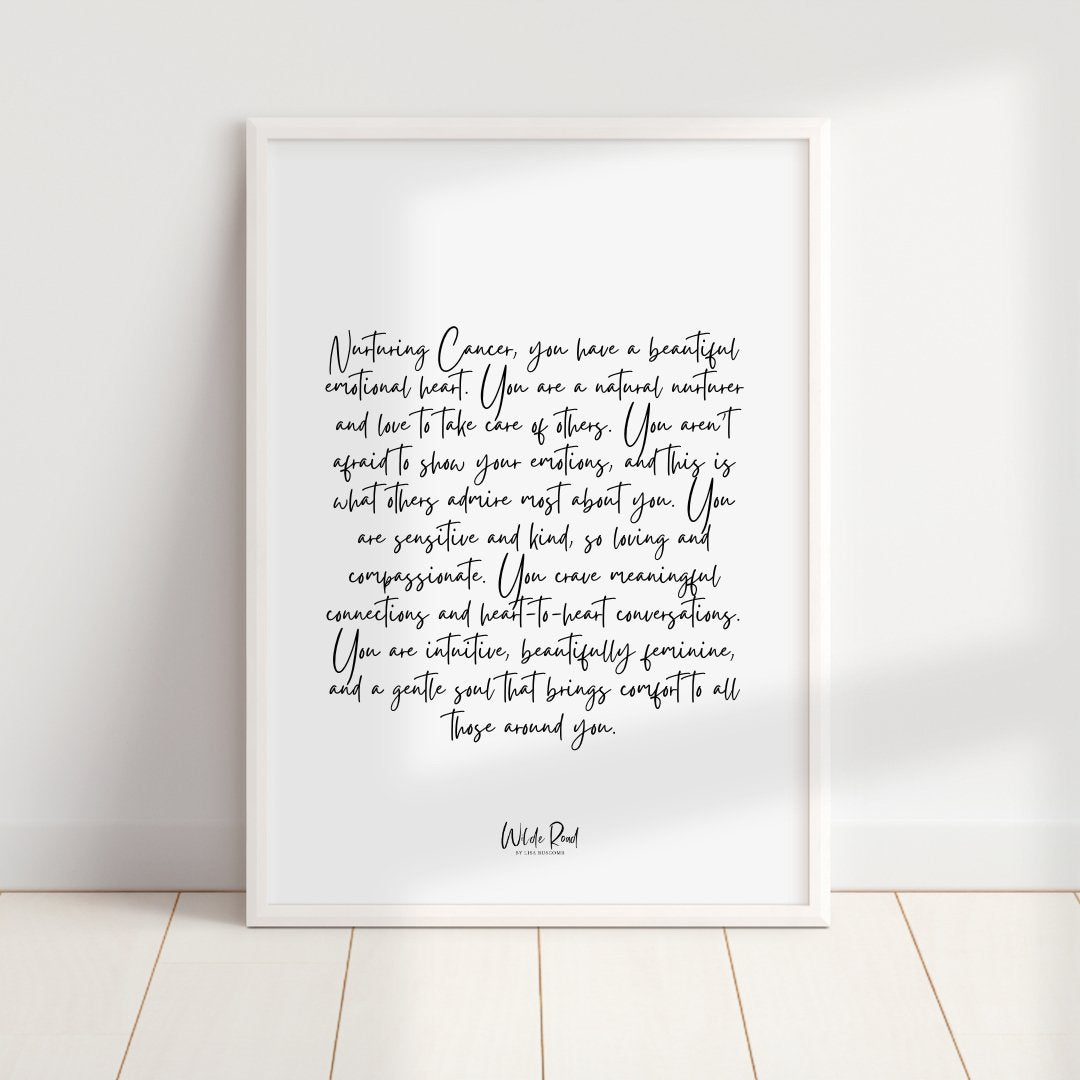 Nurturing Cancer, you have a beautiful
emotional heart. You are a natural nurturer
and love to take care of others. You aren't
afraid to show your emotions, and this is
what others admire most about you. You
are sensitive and kind, so loving and
compassionate. You crave meaningful
connections and heart-to-heart conversations.
You are intuitive, beautifully feminine,
and a gentle soul that brings comfort to all
those around you.
Wilde Road
BY LISA BUSCOMB